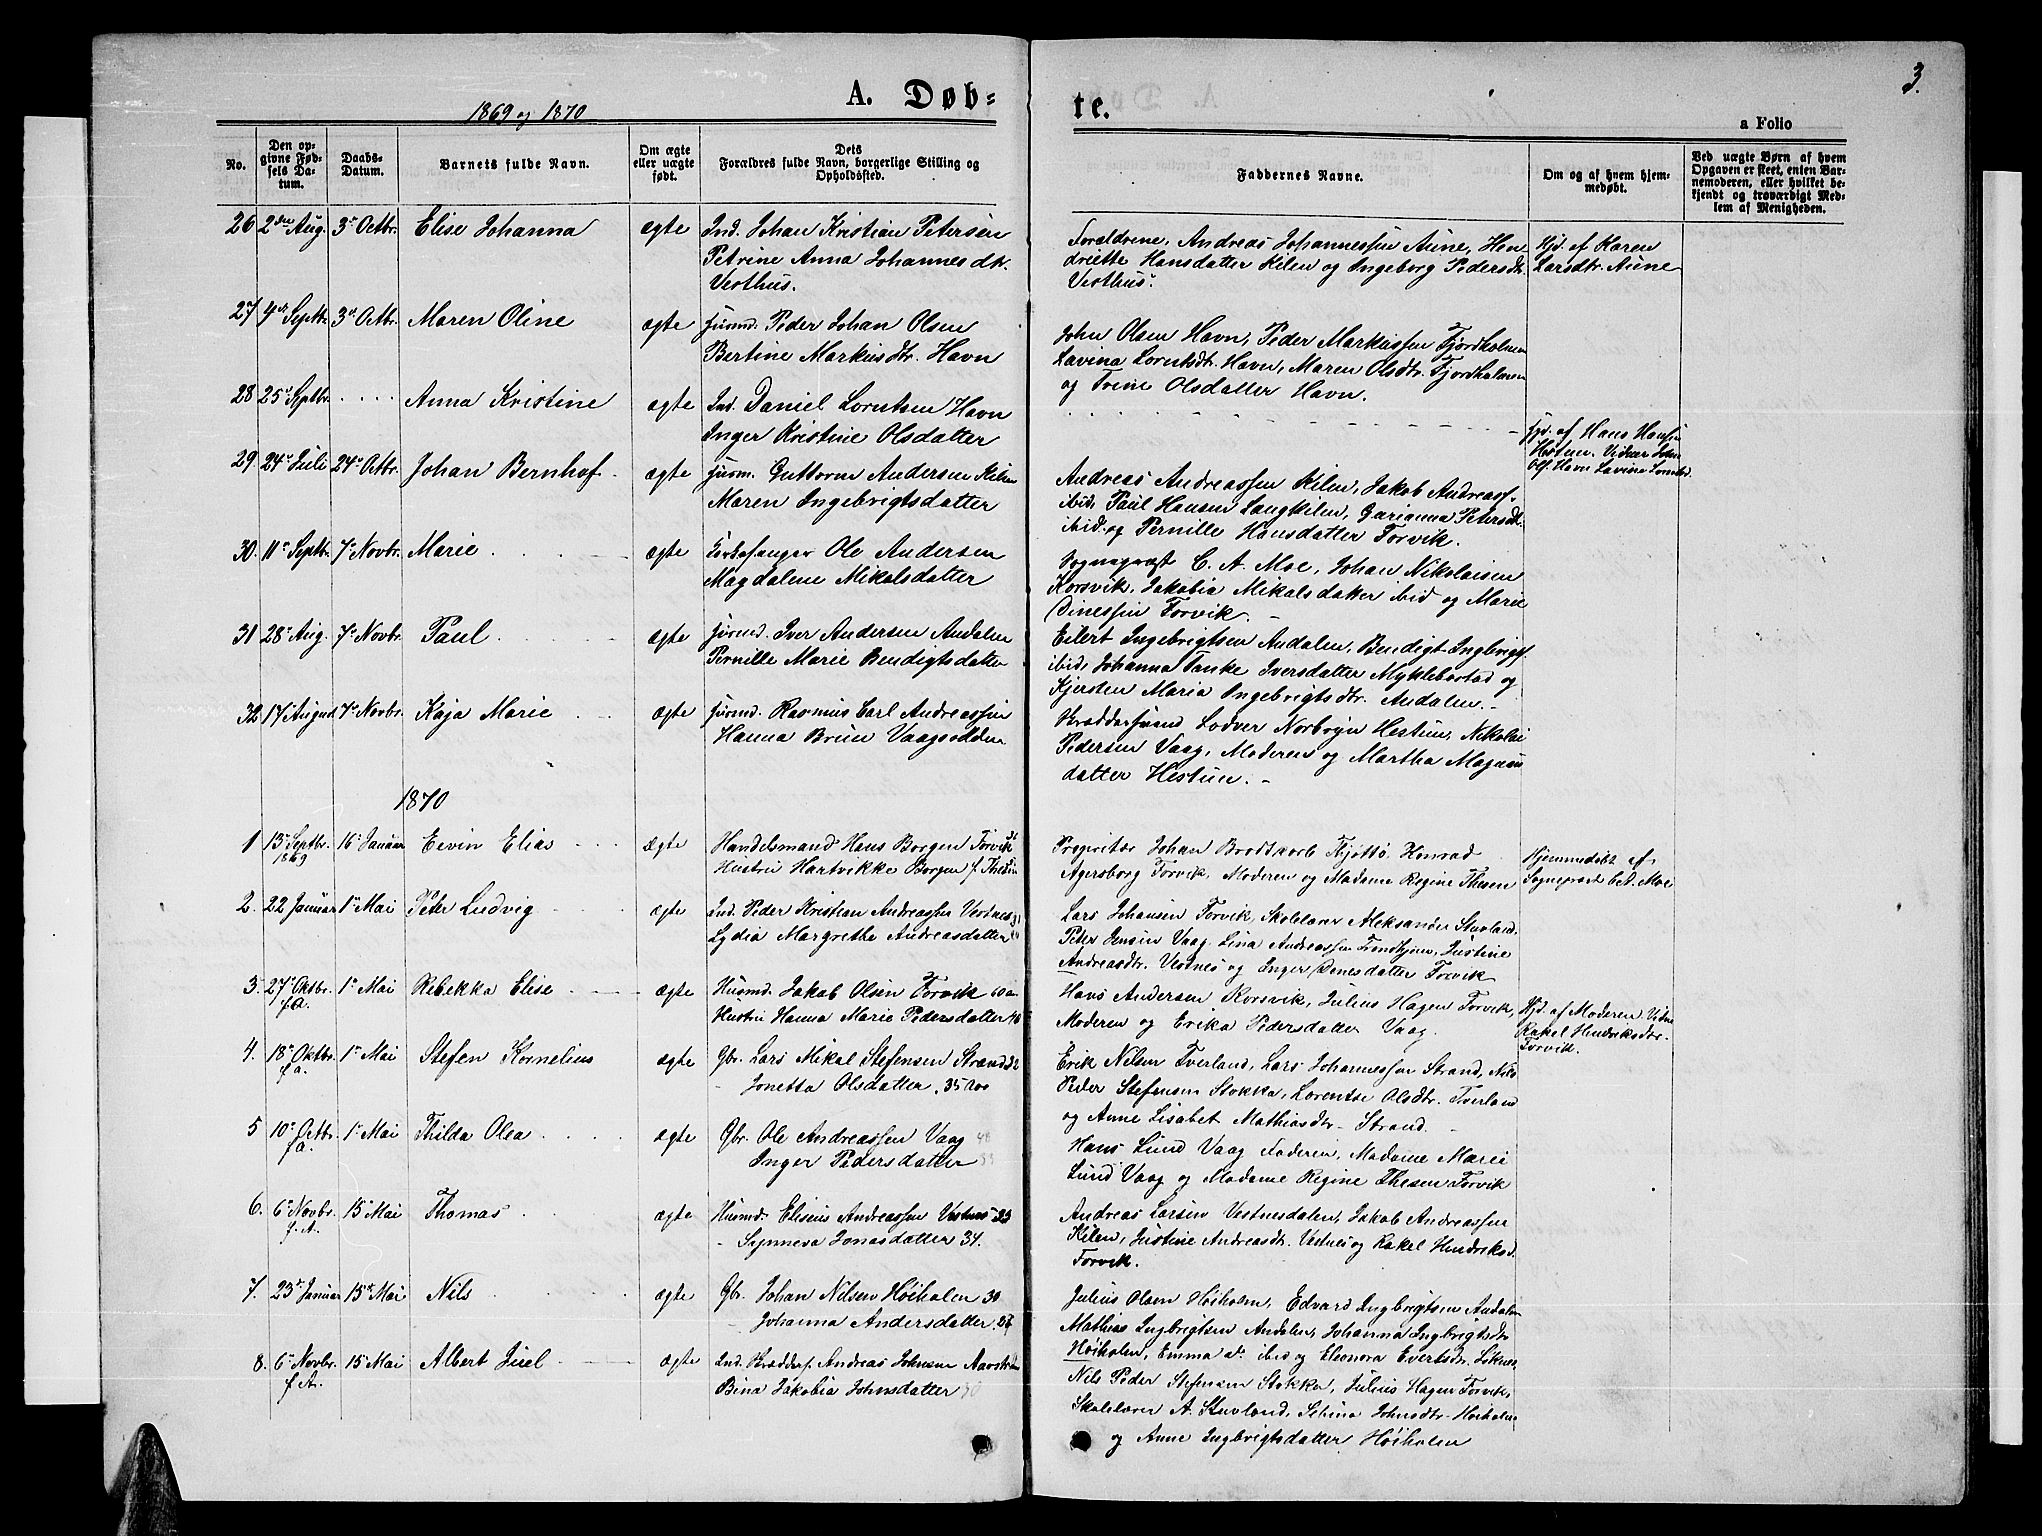 3.
1869 og 1870
A. Døb=
te.
a Folio
No.
Den opgivne Fødsels Datum.
Daabs-Datum.
Barnets fulde Navn.
Om ægte eller uægte født.
Dets Forældres fulde Navn, borgerlige Stilling og Opholdssted.
Faddernes Navne.
Om og af hvem hjemmedøbt.
Ved uægte Børn af hvem Opgaven er skeet, enten Barnemoderen, eller hvilket bekjendt og troværdigt Medlem af Menigheden.
26 2den Aug. 3e Octbr. Elise Johanna ægte Ind. Johan Kristian Petersen
Petrine Anna Johannesdtr.
Vesthus.
Forældrene, Andreas Johannessen Aune, Hendriette Hansdatter Kilen og Ingeborg Pedersdtr. Vesthus.
Hjd. af Karen Larsdtr. Aune
27 4de Septbr. 3e Octbr. Maren Oline ægte Husmd. Peder Johan Olsen
Bertine Markusdtr. Havn
John Olsen Havn, Peder Markussen Fjordholmen
Lavina Lorntsdtr. Havn, Maren Olsdtr. Fjordholmen
og Trine Olsdatter Havn.
28 25e Septbr. . . . . Anna Kristine ægte Ind. Daniel Lorntsen Havn
Inger Kristine Olsdatter
Hjd. af Hans Hansen
Hestun. Vidner John
Ols. Havn Lavina Lorntsd.
29 24e Juli 24e Octbr. Johan Bernhof ægte Husm. Guttorm Andersen Kilen
Maren Ingebrigtsdatter
Andreas Andreassen Kilen, Jakob Andreass.
ibid, Paul Hansen Langkilen, Petersdt.
ibid. og Pernille Hansdatter Forvik.
30. 11e Septbr. 7e Novbr. Marie ægte Ole Andersen
Magdalene Mikalsdatter
Sognepræst C. A. Moe, Johan Nikolaisen
Korsvik, Jakobia Mikalsdatter ibid og Marie
Dinessen Forvik.
31 28e Aug. 7e Novbr. Paul ægte Husmd. Iver Andersen Andalen
Pernille Marie Bendigtsdatter
Eilert Ingebrigtsen Andalen, Bendigt Ingbrigs.
ibid, Johanna Tanke Iversdatter Myklebostad og
Kjersten Maria Ingebrigtsdtr. Andalen.
32 17 August 7e Novbr. Kaja Marie ægte Husmd. Rasmus Carl Andreassen
Hanna Brun Vaagsodden
Skræddersvend Lodver Norbryn Hestun, Nikolai
Pedersen Vaag, Moderen og Martha Magnus
datter Hestun.
1870
1 13e Septbr. 1869 16e Januar Eevin Elias ægte Handelsmand Hans Borgen Forvik
Hustru Hartvikke Borgen f. Thesen
Propritær Johan Brodtkorb Tjøttø, Konrad
Agersborg Forvik, Moderen og Madame Regine Thesen
Hjemmedøbt af
Sognepræst C. A. Moe
2. 22 Januar 1e Mai Peter Ludvig ægte Ind. Peder Kristian Andreassen Vestnes
Lydia Margrethe Andreasdatter
Lars Johansen Forvik, Skolelærer Aleksander Stuvland.
Peter Jensen Vaag, Lina Andreassen Trondhjem, Justine
Andreasdtr. Vestnes og Inger Dinesdatter Forvik
3. 27e Oktbr. f.A. 1e Mai Rebekka Elise ægte Husmd. Jakob Olsen Forvik
Hustru Hanna Marie Pedersdatter
Hans Andersen Korsvik, Julius Hagen Forvik,
Moderen og Erika Pedersdatter Vaag.
Hjd. af Moderen
Rakel Hendriksdtr.
Forvik.
4. 18e Oktbr. f.a. 1e Mai Stefen Kornelius ægte Gbr. Lars Mikal Stefensen Strand
Jonetta Olsdatter, 35
Erik Nilsen Tverland, Lars Johannessen Strand, Nils
Peder Stefensen Stokka, Lorentse Olsdtr. Tverland
og Anne Lisabet Mathiasdtr. Strand.
5 10e Octbr. f.a. 1e Mai Thilda Olea ægte Gbr. Ole Andreassen Vaag
Inger Pedersdatter
Hans Lund Vaag Faderen, Madame Marie
Lund Vaag og Madame Regine Thesen Forvik
6. 6e Novbr. f.A. 15 Mai Thomas ægte Husmd. Eliseus Andreassen Vestnes
Synneva Jonasdatter 34.
Andreas Larsen Vestnesdalen, Jakob Andreassen
Kilen, Justine Andreasdtr. Vestnes og Rakel Hendriksd.
Forvik.
7. 23de Januar 15de Mai Nils ægte Gbr. Johan Nilsen Høiholm 30
Johanna Andersdatter 27
Julius Olsen Høiholm, Edvard Ingbrigtsen Andalen
Mathias Ingbrigtsen Andalen, Johanna Ingbrigtsdtr
Høiholm, Emma do. ibid og Eleonora Evertsdtr.
8. 6e Novbr. f.Ar. 15 Mai Albert Juel ægte Ind. Skrædder Andreas Johnsen
Bina Jakobia Johnsdatter 30
Nils Peder Stefensen Stokka, Julius Hagen Forvik,
Skolelærer A. Stuvland, Selina Johnsdtr. Høiholm
og Anne Ingbrigtsdatter Høiholm